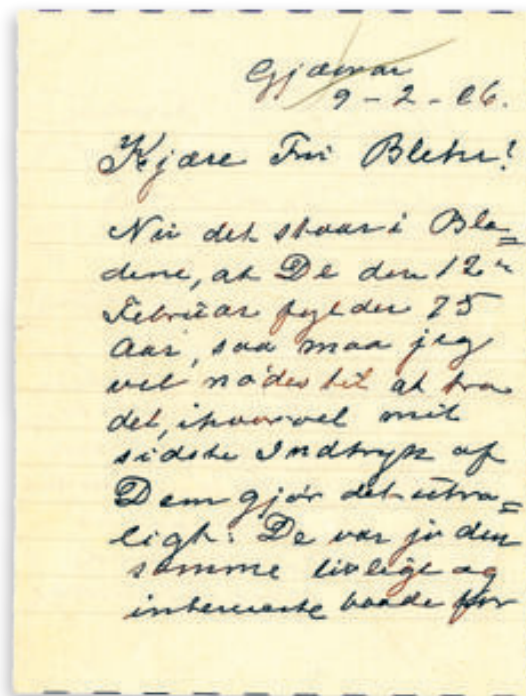 Gjævar
9-2-26.
Kjære Fru Blehr!
Nu det staar i Bla=
dene, at De den 12te
Februar fylder 75
Aar, saa maa jeg
vel nødes til at tro
det, ihvorvel mit
sidste Indtryk af
Dem gjør det utro=
ligt. De var jo den
samme livlige og
interesserte baade for